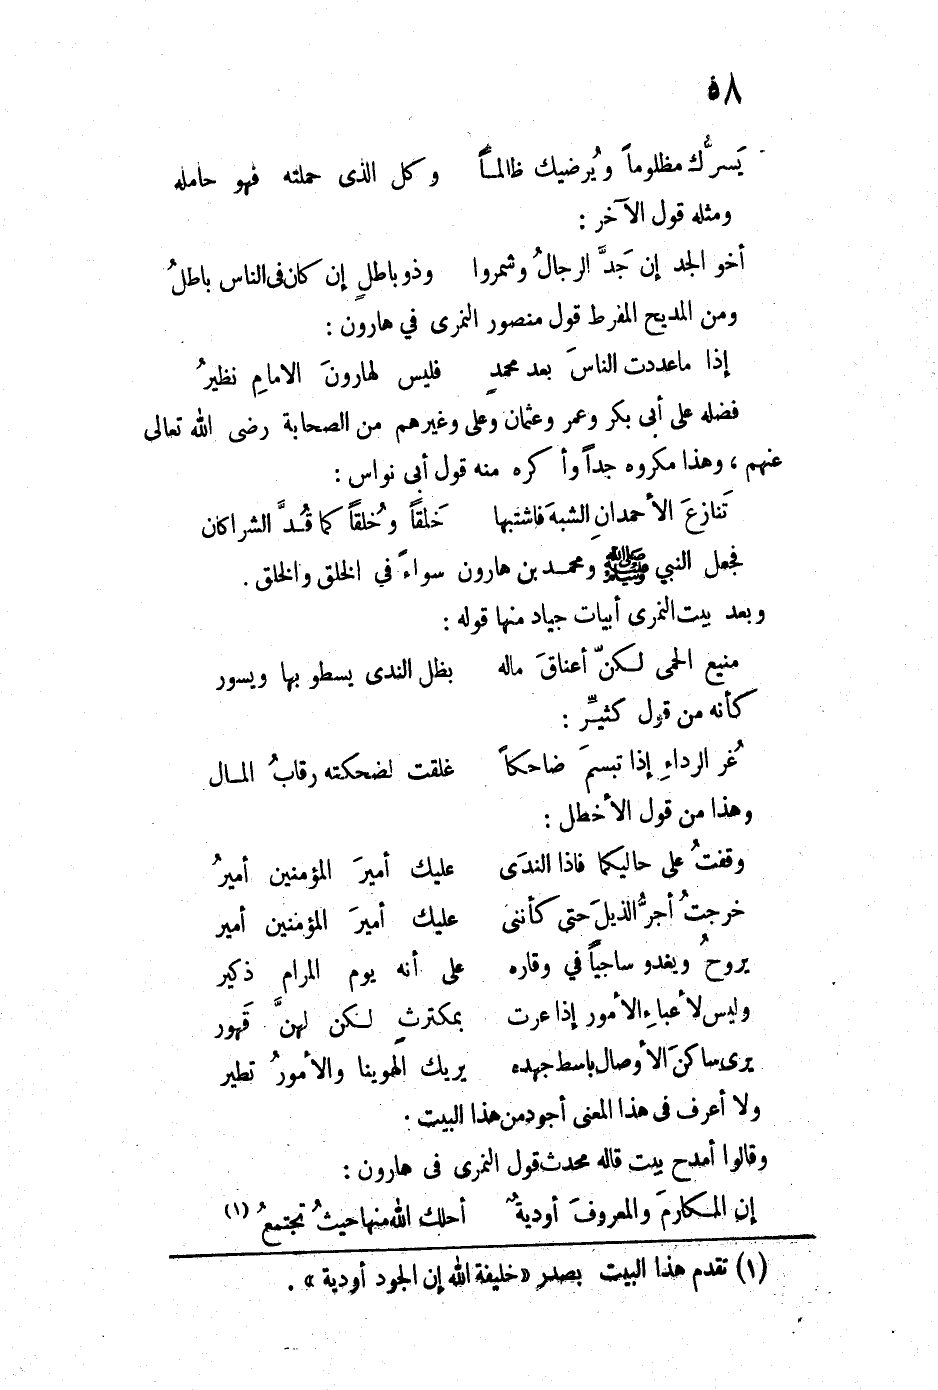 ٥٨
يَسرُّك مظلوماً ويُرضيك ظالمـاً وكل الذى حملته فهو حامله
ومثله قول الآخر :
أخو الجد إن جَدَّ الرجالُ وشمروا وذو باطلٍ إن كان فى الناس باطلُ
ومن المديح المفرط قول منصور النمرى في هارون :
إذا ماعددت الناسَ بعد محمدٍ فليس لهارونَ الامامِ نظيرُ
فضله على أبى بكر وعمر وعثمان وعلى وغيرهم من الصحابة رضى الله تعالى
عنهم ، وهذا مكروه جداً وأكره منه قول أبى نواس :
تَنازعَ الأحمدانِ الشبهَ فاشتبها خَلقاً وخُلقاً كما قُـدَّ الشراكان
فجعل النبي ﷺ ومحمـد بن هارون سواءً في الخلق والخلق .
وبعد بيت النمرى أبيات جياد منها قوله :
منيع الحمى لـكنّ أعناقَ ماله بظل الندى يسطو بها ويسور
كأنه من قول كثيـّر :
غُمر الرداءِ إذا تبسمَ ضاحكاً غلقت لضحكته رقابُ المـال
وهذا من قول الأخطل :
وقفتُ على حاليكما فاذا الندَى عليك أميرَ المؤمنين أميرُ
خرجتُ أجرُّ الذيلَ حتى كأننى عليك أميرَ المؤمنين أمير
يروحُ ويغدو ساجياً في وقاره على أنه يوم المرام ذكير
وليس لأعباءِ الأمور إذا عرت بمكترثٍ لـكن لهنَّ قَهور
يرى ساكنَ الأوصال باسط جهده يريك الهوينا والأمورُ تطير
ولا أعرف فى هذا المعنى أجود من هذا البيت .
وقالوا أمدح بيت قاله محدث قول النمرى فى هارون :
إن المـكارمَ والمعروفَ أوديةٌ أحلك الله منها حيثُ تجتمعُ (١)
(١) تقدم هذا البيت بصدر «خليفة الله إن الجود أودية» .